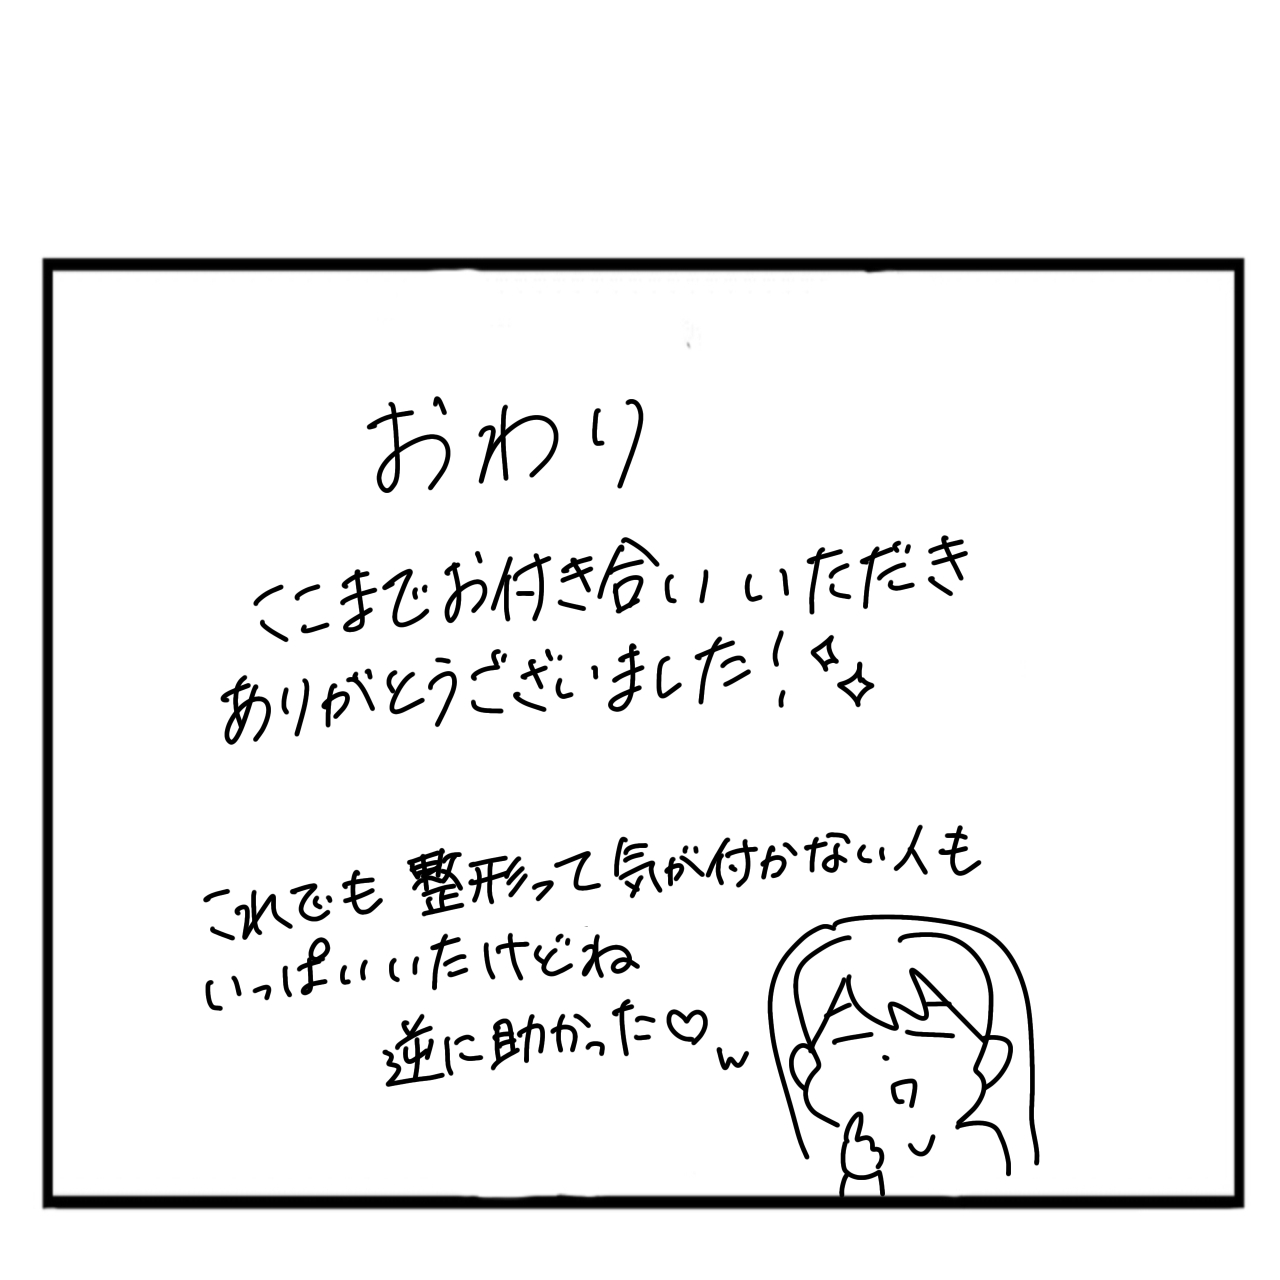 おわり
ここまでお付き合いいただき
ありがとうございました!
これでも整形って気が付かない人も
いっぱいいたけどね
逆に助かった♡w